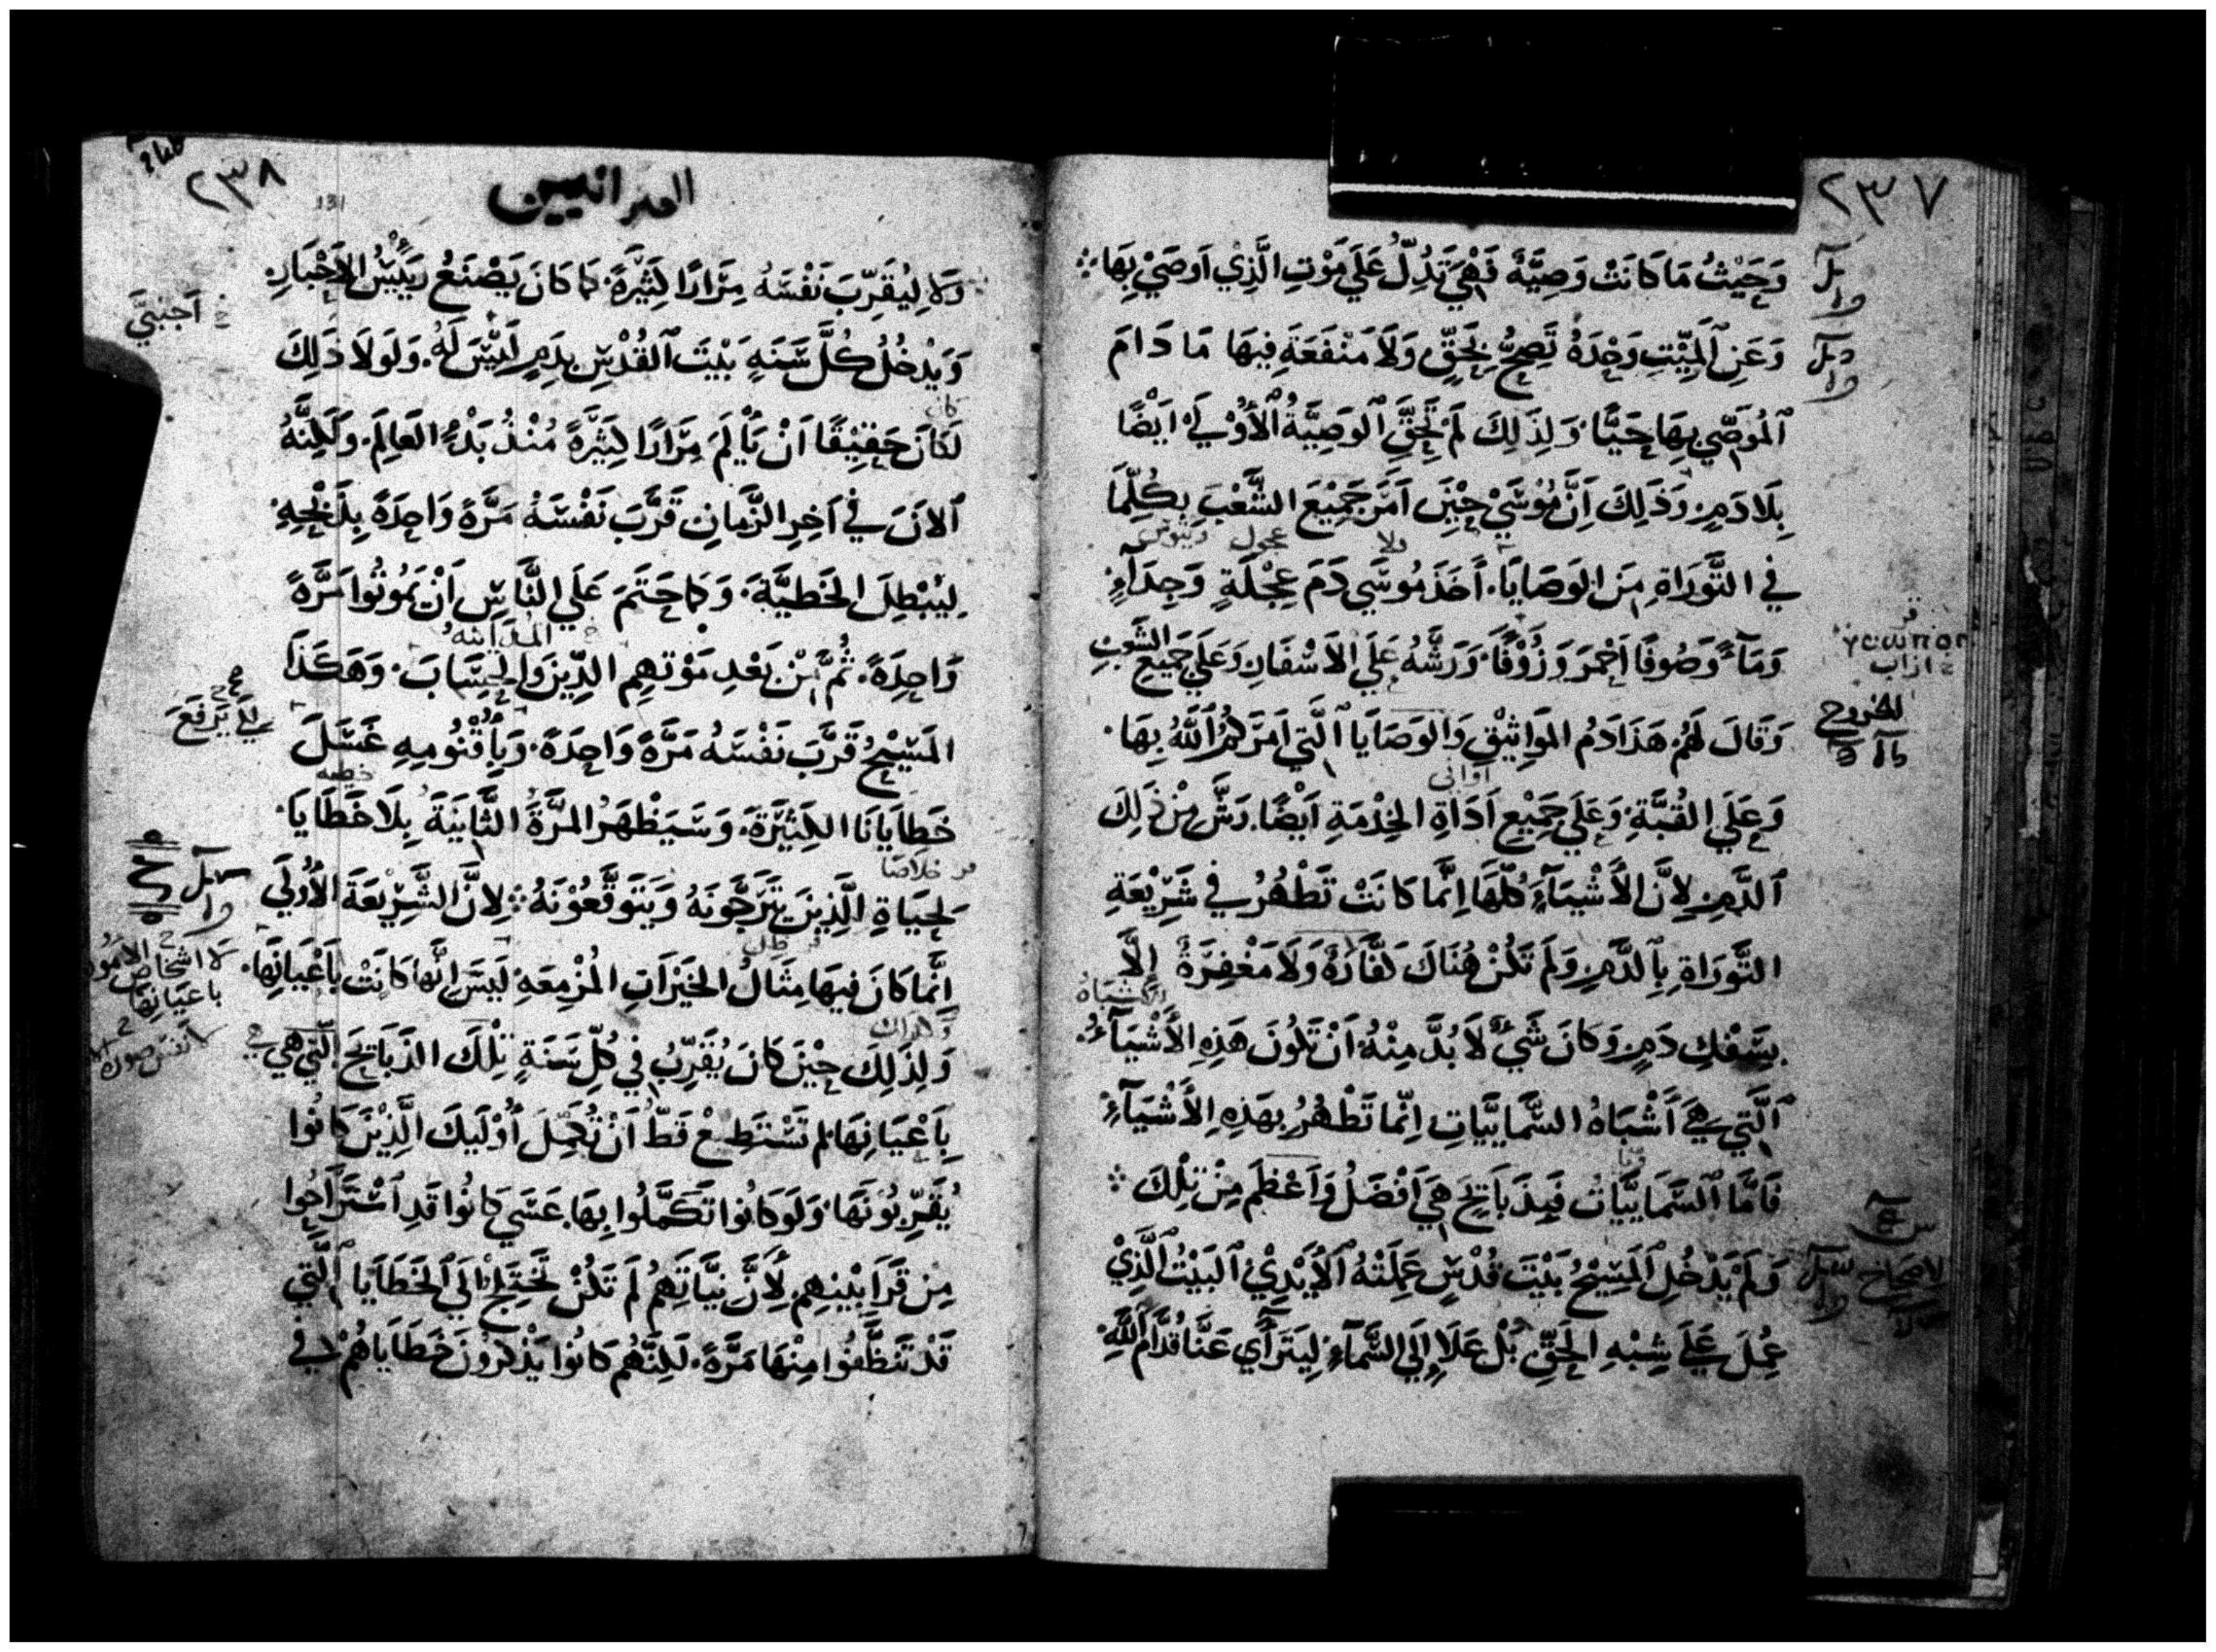 ٢٣٧
وَحَيْثُ مَا كَانَتْ وَصِيَّةٌ فَهْيَ تَدُلُّ عَلَي مَوْتِ الَّذِي اَوصَيْ بِهَا
وَعَنِ ٱلمَيِّتِ وَحْدَهُ تَصِحُّ بِحَقٍّ وَلَا مَنْفَعَةَ فِيهَا مَا دَامَ
ٱلمُوَصِّي بِهَا حَيًّا وَلِذَلِكَ لَم تَحِقَّ ٱلوَصِيَّةُ ٱلأُوْلَي اَيْضًا
بِلَا دَمٍ وَذَلِكَ اَنَّ مُوْسَيْ حِيْنَ اَمَرَ جَمِيْعَ الشَّعْبَ بِكُلِّمَا
فِي التَّوْرَاةِ مِنَ الوَصَايَا اَخَذَ مُوسَي دَمَ عِجْلَةٍ وَجِدَآءٍ
وَمَآءً وَصُوفًا اَحْمَرَ وَزُوْفًا وَرَشَّهُ عَلَي الاَسْفَارِ وَعَلَي جَمِيْعِ الشَّعْبِ
وَقَالَ لَهُم هَذَا دَمُ المَوَاثِيْقِ وَالوَصَايَا ٱلَّتِي اَمَرَكُمُ ٱللَّهُ بِهَا
وَعَلَي القُبَّةِ وَعَلَي جَمِيْعِ اَدَاةِ الخِدْمَةِ اَيْضًا رَشَّ مِنْ ذَلِكَ
ٱلدَّمِ لِاَنَّ الاَشْيَآءَ كُلَّهَا اِنَّمَا كَانَتْ تَطْهُرُ فِي شَرِيْعَةِ
التَّوْرَاةِ بِٱلدَّمِ وَلَم تَكُنْ هُنَاكَ كَفَّارَةٌ وَلَا مَغْفِرَةٌ اِلَّا
بِسَفْكِ دَمٍ وَكَانَ شَيْءٌ لَا بُدَّ مِنْهُ اَنْ تَكُونَ هَذِهِ الاَشْيَآءُ
ٱلَّتِي هِيَ اَشْبَاهُ السَّمَايِيَّاتِ اِنَّمَا تَطْهُرُ بِهَذِهِ الاَشْيَآءِ
فَاَمَّا ٱلسَّمَايِيَّاتُ فَبِذَبَايِحَ هِيَ اَفْضَلُ وَاَعْظَم مِنْ تِلْكَ
وَلَم يَدْخُلِ ٱلمَسِيْحُ بَيْتَ قُدْسٍ عَمِلَتْهُ ٱلاَيْدِيْ ٱلبَيْتُ ٱلَّذِيْ
عُمِلَ عَلَي شِبْهِ الحَقِّ بَلْ عَلَا اِلَي السَّمَآءِ لِيَتَرَآءَي عَنَّا قُدَّامَ ٱللَّهِ
الخروج
٢٣٨
131
العبرانيين
وَلا لِيُقَرِّبَ نَفْسَهُ مِرَارًا كَثِيْرَةً كَمَا كَانَ يَصْنَعُ رَيِيْسُ الاَحْبَارِ
وَيَدْخُلُ كُلَّ سَنَةٍ بَيْتَ ٱلقُدْسِ بِدَمٍ لَيْسَ لَهُ وَلَولَا ذَلِكَ
لَكَانَ حَقِيْقًا اَنْ يَأْلَمَ مِرَارًا كَثِيْرَةً مُنْذُ بَدْءِ العَالَمِ وَلَكِنَّهُ
ٱلاَنَ فِي اَخِرِ الزَّمَانِ قَرَّبَ نَفْسَهُ مَرَّةً وَاحِدَةً بِذَبْحِهِ
لِيُبْطِلَ الخَطِيَّةَ وَكَمَا حَتَمَ عَلَي النَّاسِ اَنْ يَمُوتُوا مَرَّةً
وَاحِدَةً ثُمَّ مِنْ بَعْدِ مَوْتِهِمِ الدِّيْنَ وَالحِسَابَ وَهَكَذَا
المَسِيْحُ قَرَّبَ نَفْسَهُ مَرَّةً وَاحِدَةً وَبِاُقْنُومِهِ غَسَلَ
خَطَايَانَا الكَثِيْرَةَ وَسَيَظْهَرُ المَرَّةَ الثَّانِيَةَ بِلَا خَطَايَا
لِحَيَاةِ الَّذِيْنَ يَتَرَجَّونَهُ وَيَتَوَقَّعُوْنَهُ لِاَنَّ الشَّرِيْعَةَ الاُولَي
اِنَّمَا كَانَ فِيهَا مِثَالُ الخَيْرَاتِ المُزْمِعَةِ لَيسَ اِنَّهَا كَانَتْ بِاَعْيَانِهَا
وَلِذَلِكَ حِيْنَ كَانَ يُقَرِّبُ فِي كُلِّ سَنَةٍ تِلْكَ الذَّبَايِحَ الَّتِي هِي
بِاَعْيَانِهَا لم تَسْتَطِعْ قَطُّ اَنْ تُكَمِّلَ اُوْلَيِكَ الَّذِيْنَ كَانُوا
يُقَرِّبُوْنَهَا وَلَو كَانُوا تَكَمَّلُوا بِهَا عَسَي كَانُوا قَدِ اَسْتَرَاحُوا
مِن قَرَابِيْنِهِم لِاَنَّ نِيَّاتَهُم لَم تَكُنْ تَحْتَجْ اِلَي ٱلخَطَايَا ٱلَّتِي
قَدْ تَنَظَّفُوا مِنْهَا مَرَّةً لَكِنَّهُم كَانُوا يَذْكُرُوْنَ خَطَايَاهُمْ فِي
اَجنبيَّ